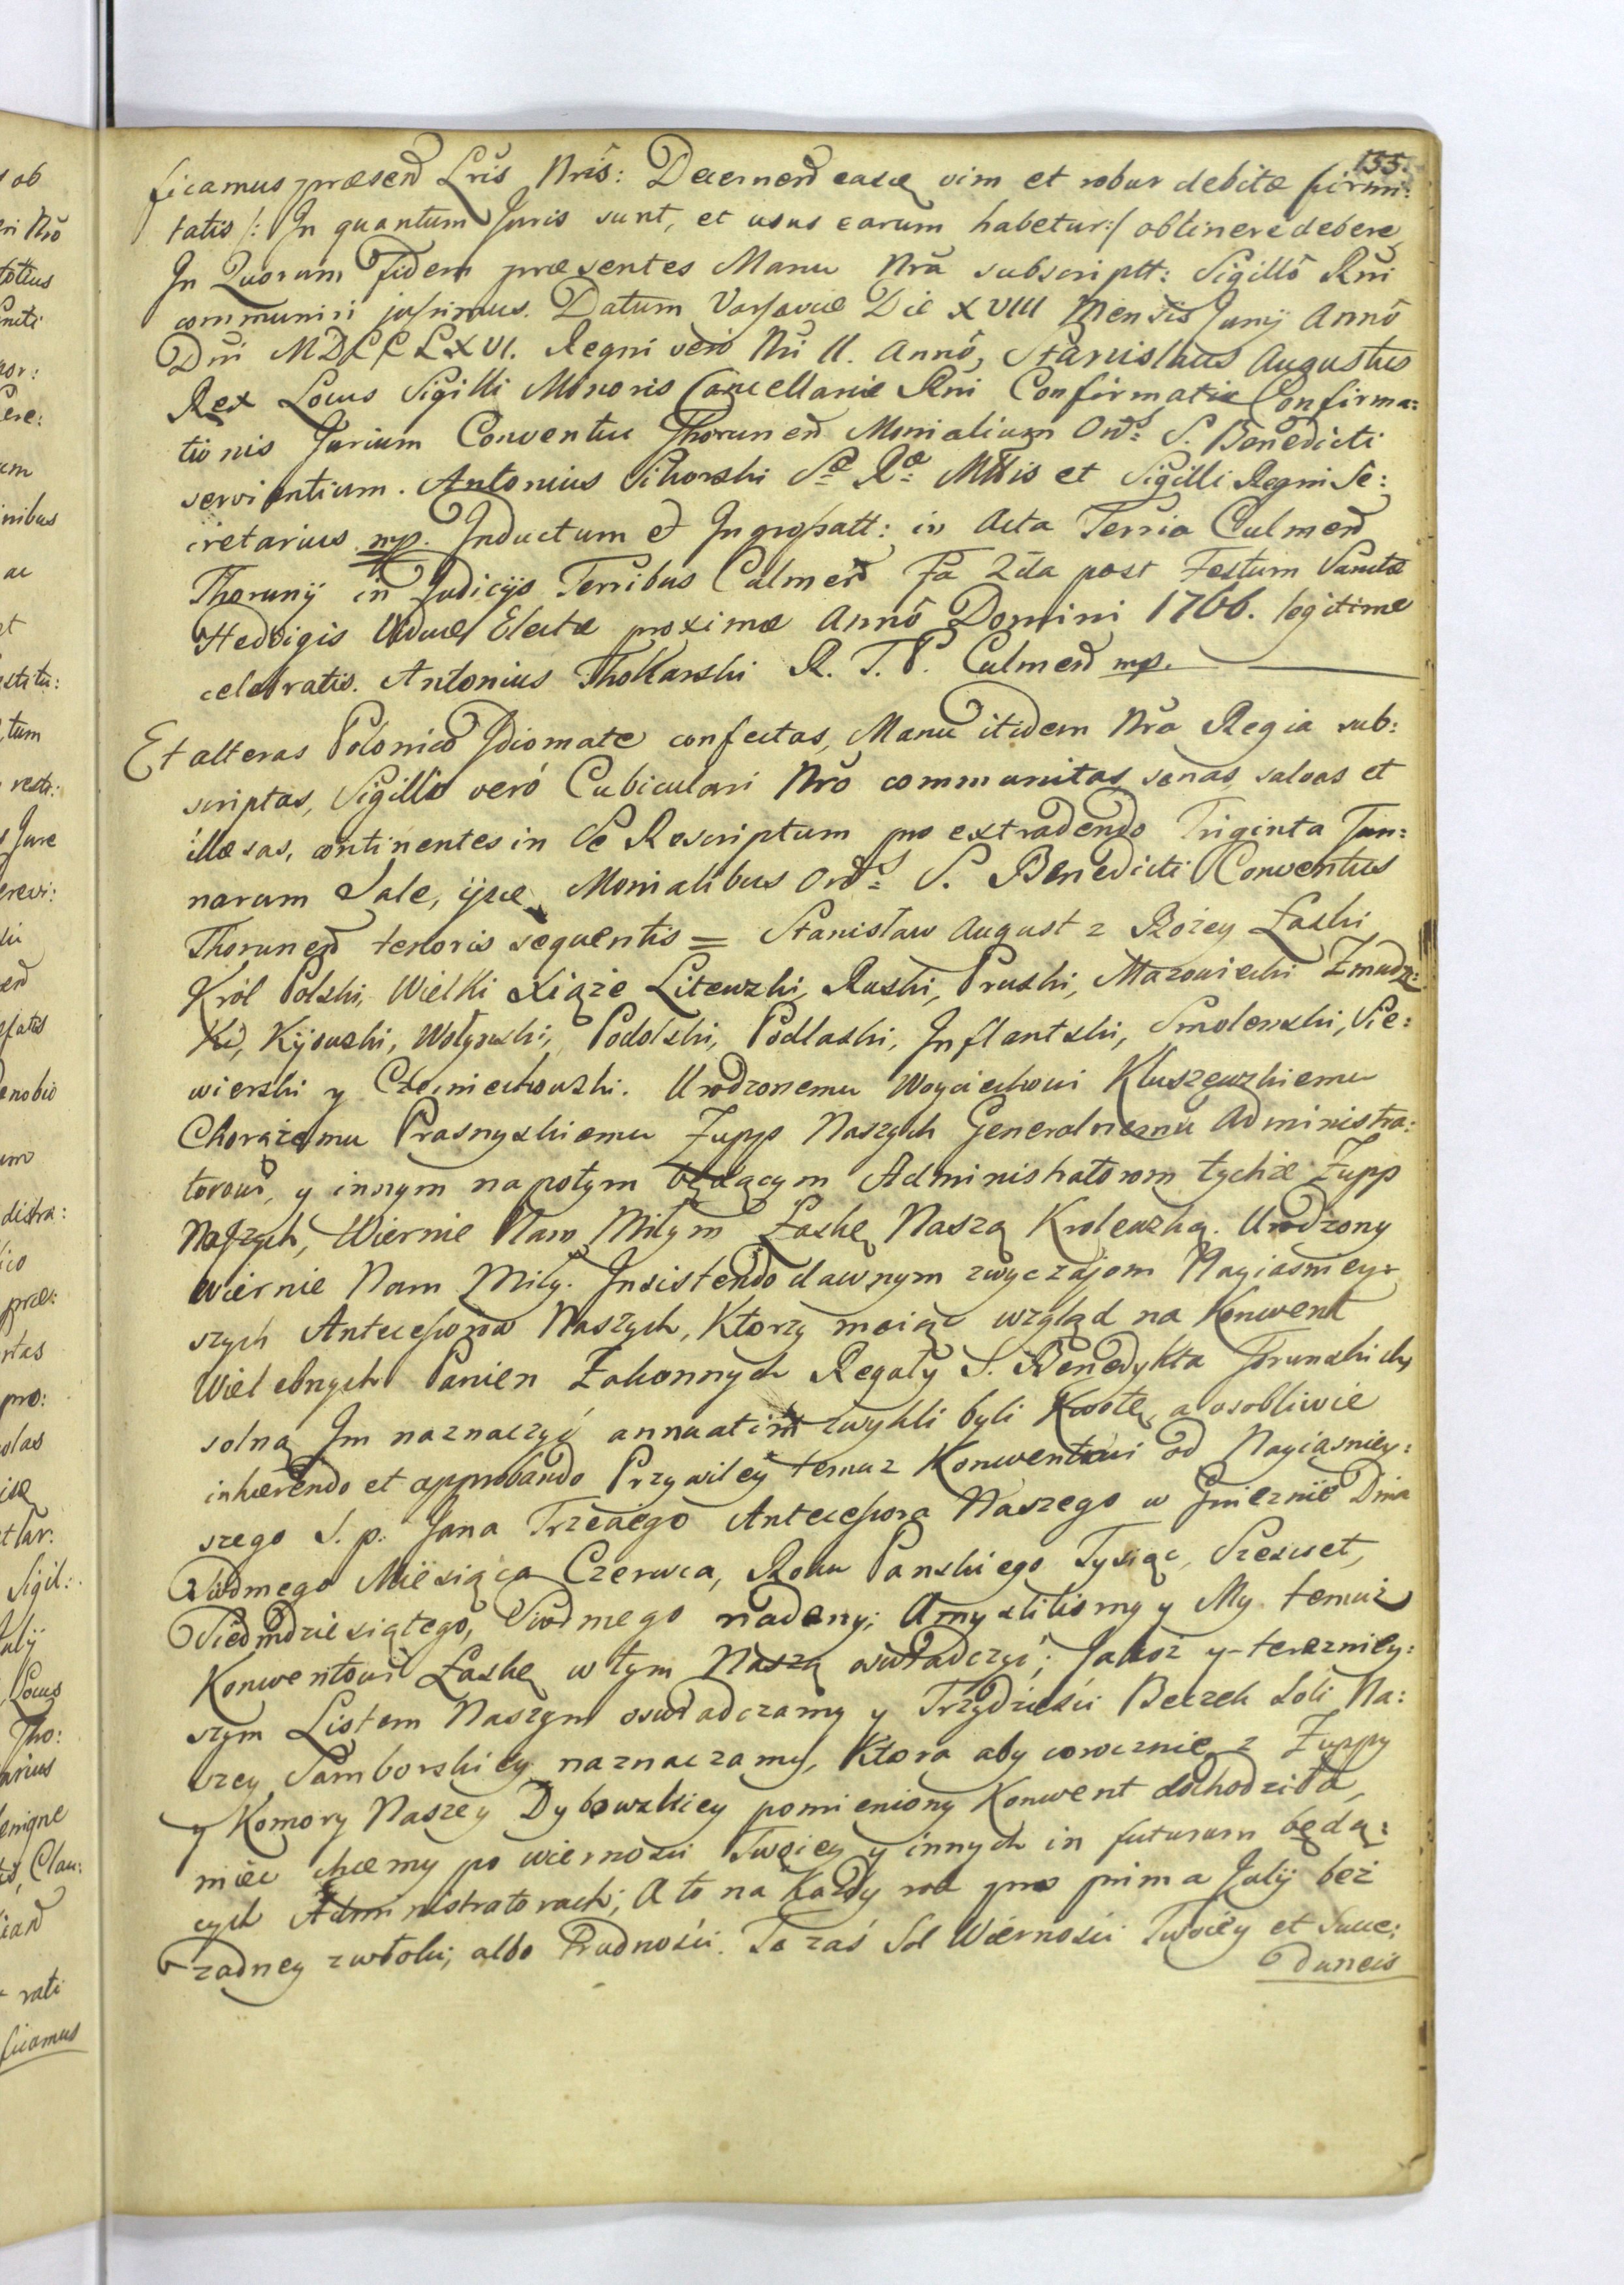 155.
ficamus præsend Lris Nris: Decernend easq vim et robur debitæ firmi:
tatis /: In quantum Juris sunt, et usus earum habetur :/ obtinere debere,
In Quorum Fidem præsentes Manu Nra subscriptt: Sigillô Rni
communiri jussimus. Datum Varsaviæ Die XVIII Mensis Junij Annô
Dni MDCCLXVI. Regni verò Nri II. Annô, Stanislaus Augustus
Rex Locus Sigilli Minoris Cancellariæ Rni Confirmatio Confirma:
tionis Jurium Conventui Thorunen Monialium Ord: S. Benedicti
servientium. Antonius Sikorski Sæ Ræ Mttis et Sigilli Regni Se:
cretarius mp. Inductum et Ingrossatt: in Acta Terria Culmen
Thorunij in Judicijs Terribus Culmen Fa 2da post Festum Sanctæ
Hedvigis Viduæ Electæ proxima Annô Domini 1766. legitime
celebratis. Antonius Thokarski R. T. P. Culmen mp.
Et alteras Polonico Idiomate confectas, Manu itidem Nra Regia sub:
scriptas, Sigillo verò Cubiculari Nro communitas, sanas, salvas et
illæsas, continentes in Se Rescriptum pro extradendo Triginta Tun:
narum Sale, ijsq Monialibus Ord: S. Benedicti Conventus
Thorunen tenoris sequentis = Stanisław August z Bożey Łaski
Król Polski, Wielki Xiąże Litewski, Ruski, Pruski, Mazowiecki Zmudz:
ki, Kijowski, Wołyński, Podolski, Podlaski, Inflantski, Smolenski, Sie:
wierski y Czerniechowski. Urodzonemu Woyciechowi Kluszewskiemu
Chorążemu Prasnyskiemu Zupp Naszych Generalnemu Administra:
torowi, y innym napotym będącym Administratorom tychże Zupp
Naszych, Wiernie Nam Miłym Łaskę Naszą Krolewską. Urodzony
Wiernie Nam Miły. Insistendo dawnym zwyczajom Nayiasniey:
szych Antecessorow Naszych, Ktorzy maiąc wzgląd na Konwent
Wielebnych Panien Zakonnych Reguły S. Benedykta Torunskich,
solną Im naznaczyć annuatim zwykli byli Kwotę, a osobliwie
inhærendo et approbando Przywiley temuz Konwentowi od Nayiasniey:
szego S. p. Jana Trzeciego Antecessora Naszego w Gnieznie Dnia
Siodmego Miesiąca Czerwca, Roku Panskiego Tysiąc, Szescset,
Siedmdziesiątego, Siodmego nadany; Umyslilismy y My temuż
Konwentowi Łaskę w tym Naszą oswiadczyć; Jakoż y terazniey:
szym Listem Naszym oswiadczamy y Trzydziesci Beczek Soli Na:
szey Samborskiey naznaczamy, Ktora aby corocznie z Zuppy
y Komory Naszey Dybowskiey pomieniony Konwent dochodziła,
miec chcemy po wiernosci Twoiey y innych in futurum będą:
cych Administratorach; A to na Kazdy rok pro prima Julij bez
zadney zwłoki, albo Trudnosci. Ta zaś Sol Wiernosci Twoiey et Succe:
daneis